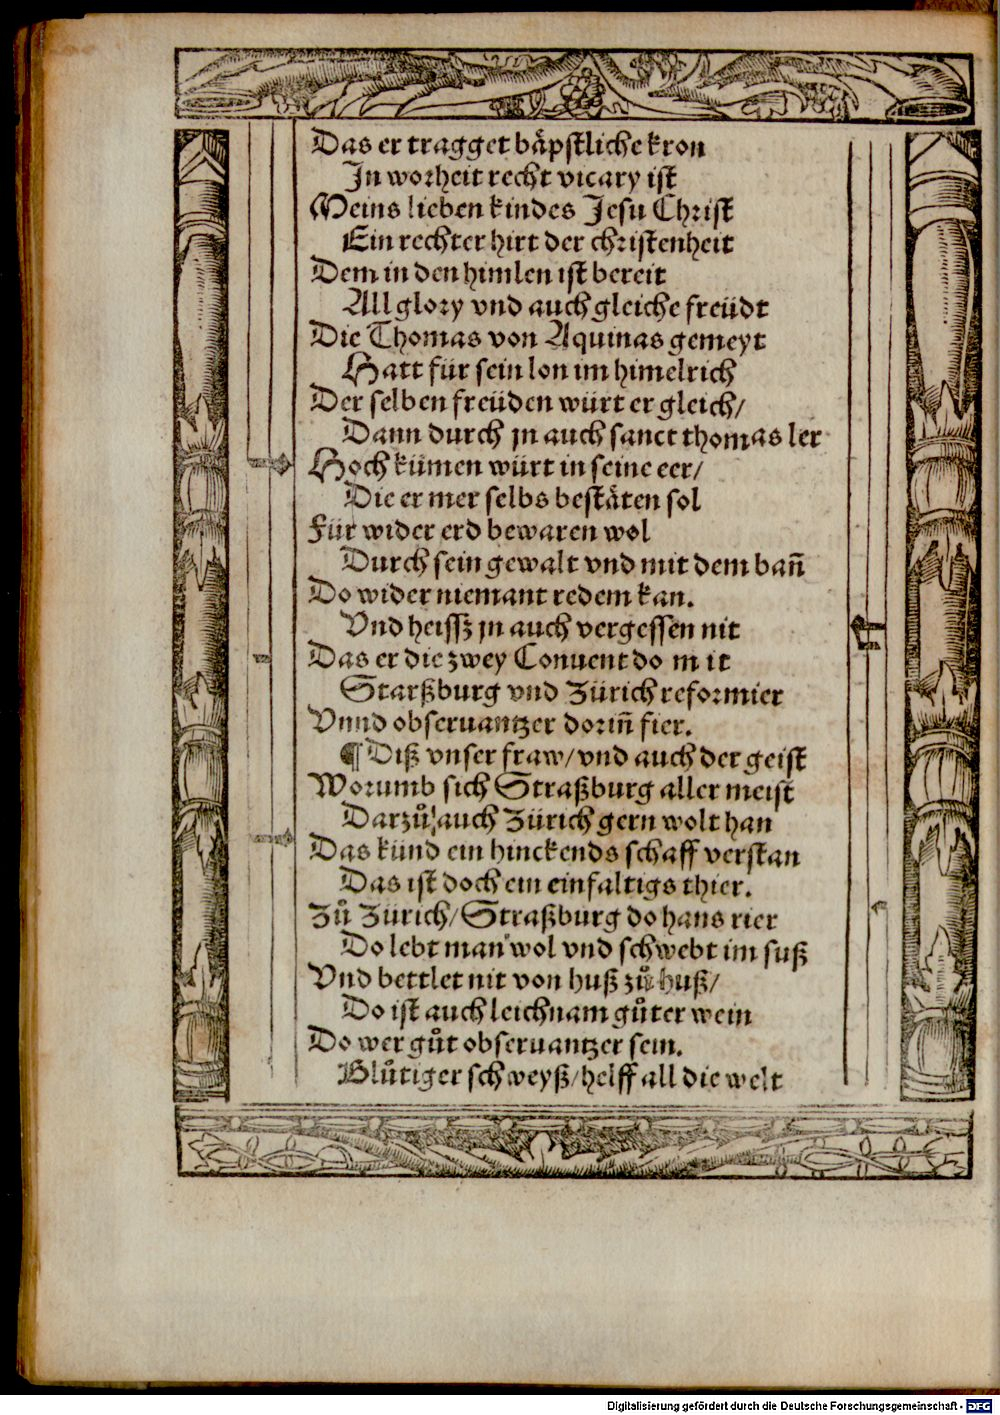 Das er tragget bäpstliche kron
In worheit recht vicary ist
Meins lieben kindes Jesu Christ
Ein rechter hirt der christenheit
Dem in den himlen ist bereit
All glory vnd auch gleiche freüdt
Die Thomas von Aquinas gemeyt
Hatt für sein lon im himelrich
Der selben freüden würt er gleich/
Dann durch jn auch sanct thomas ler
Hoch kümen würt in seine eer/
Die er mer selbs bestäten sol
Für wider erd bewaren wol
Durch sein gewalt vnd mit dem bañ
Do wider niemant redem kan.
Vnd heissz jn auch vergessen nit
Das er die zwey Conuent do mit
Starßburg vnd Zürich reformier
Vnnd obseruantzer doriñ fier.
¶ Diß vnser fraw/ vnd auch der geist
Worumb sich Straßburg aller meist
Darzuͦ auch Zürich gern wolt han
Das künd ein hinckends schaff verstan
Das ist doch ein einfaltigs thier.
Zuͦ Zürich/ Straßburg do hans rier
Do lebt man wol vnd schwebt im suß
Vnd bettlet nit von huß zuͦ huß/
Do ist auch leichnam guͦter wein
Do wer guͦt obseruantzer sein.
Bluͦtiger schweyß/ helff all die welt
Digitalisierung gefördert durch die Deutsche Forschungsgemeinschaft - DFG